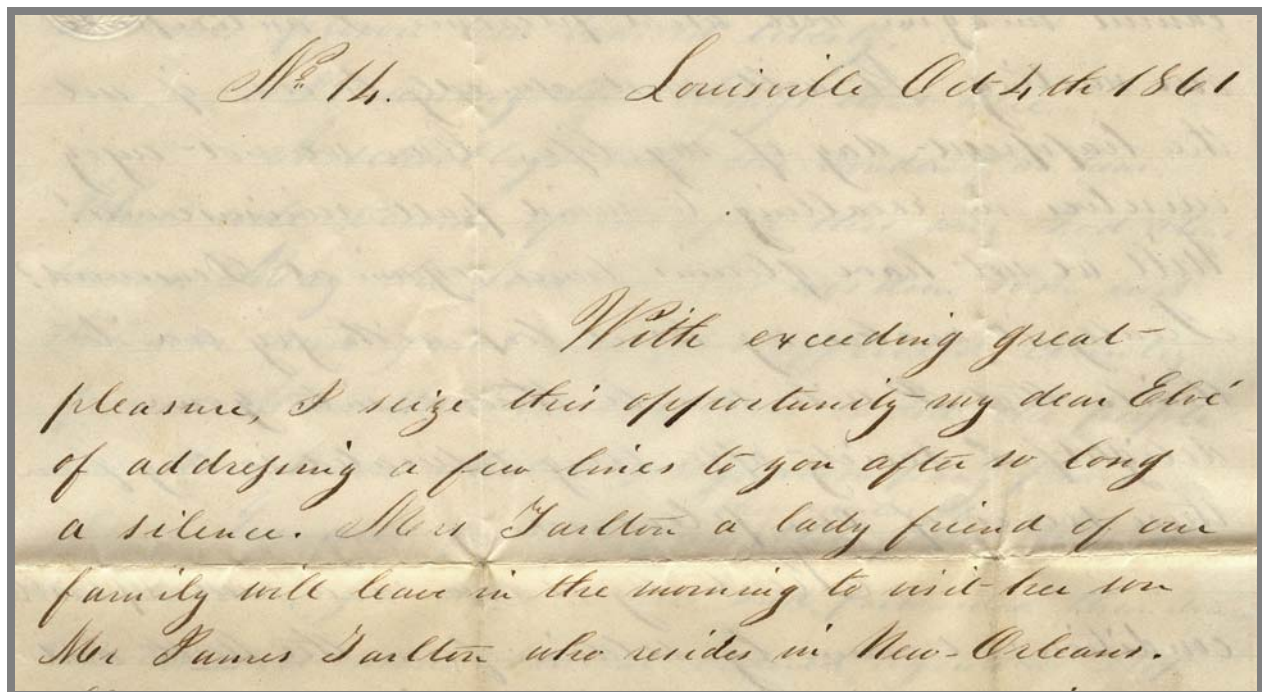 No 14. Louisville Oct 4th 1861
With exceeding great
pleasure, I seize this opportunity my dear Elvé
of addressing a few lines to you after so long
a silence. Mrs Tarlton a lady friend of our
family will leave in the morning to visit her son
Mr James Tarlton who resides in New-Orleans.